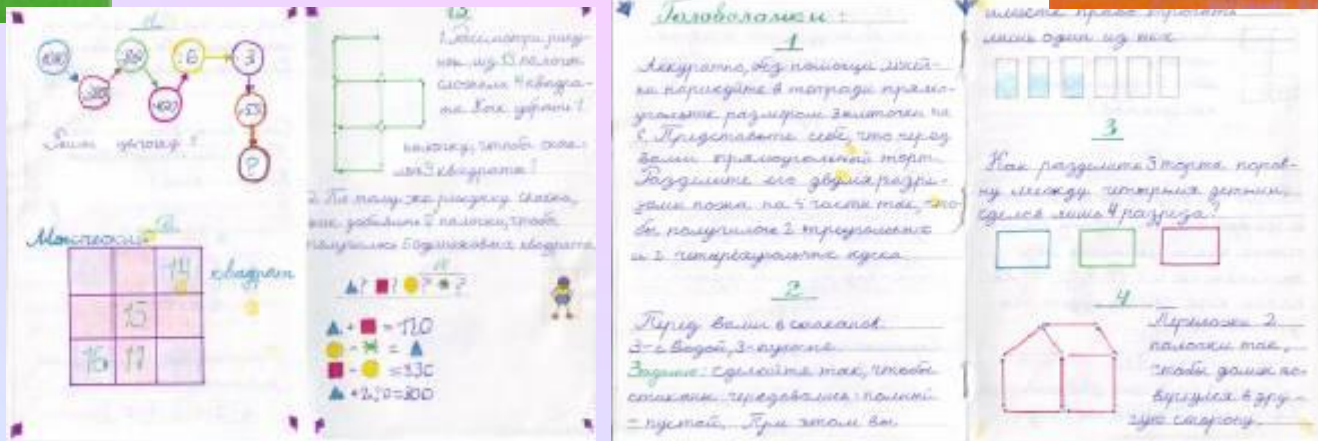 Магический
квадрат
14
15
16 17
1. Рассмотри рису-
нок из 13 палочек
сложили 4 квадра-
та. Как убрать 1
палочку, чтобы оста-
лось 3 квадрата?
2. По тому же рисунку скажи,
как добавить палочки, чтобы
получилось 5 одинаковых квадрата
? ? ? ?
+ = 120
- =
- = 330
+ 250 = 300
Головоломки:
1
Аккуратно, без помощи линей-
ки нарисуйте в тетради прямо-
угольник размером 3 клеточки на
Представьте себе, что перед
вами прямоугольный торт.
Разделите его двумя разре-
зами ножа на 4 части так, что
бы получилось 2 треугольных
и 2 четырехугольных куска.
2
Перед вами 6 стаканов:
3-с водой, 3-пустые
Задание: сделайте так, чтобы
стаканы чередовались: полный
- пустой. При этом вы
имеете право трогать
лишь один из них
3
Как разделить 3 торта поров-
ну между четырьмя детьми,
сделав лишь 4 разреза?
4
Переложи 2
палочки так,
чтобы домик по-
вернулся в дру-
гую сторону.